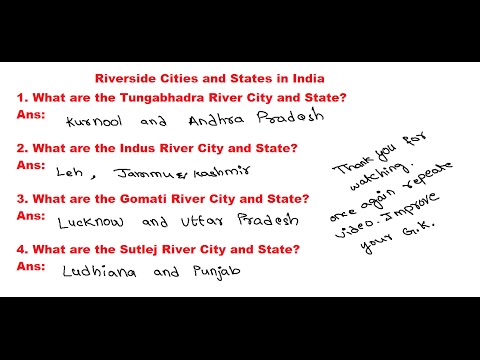 Riverside Cities and States in India
1. What are the Tungabhadra River City and State?
Ans: Kurnool and Andhra Pradesh
2. What are the Indus River City and State?
Ans: Leh, Jammu & Kashmir
3. What are the Gomati River City and State?
Ans: Lucknow and Uttar Pradesh
4. What are the Sutlej River City and State?
Ans: Ludhiana and Punjab
Thank you for
watching.
once again repeate
video. Improve
your G.K.